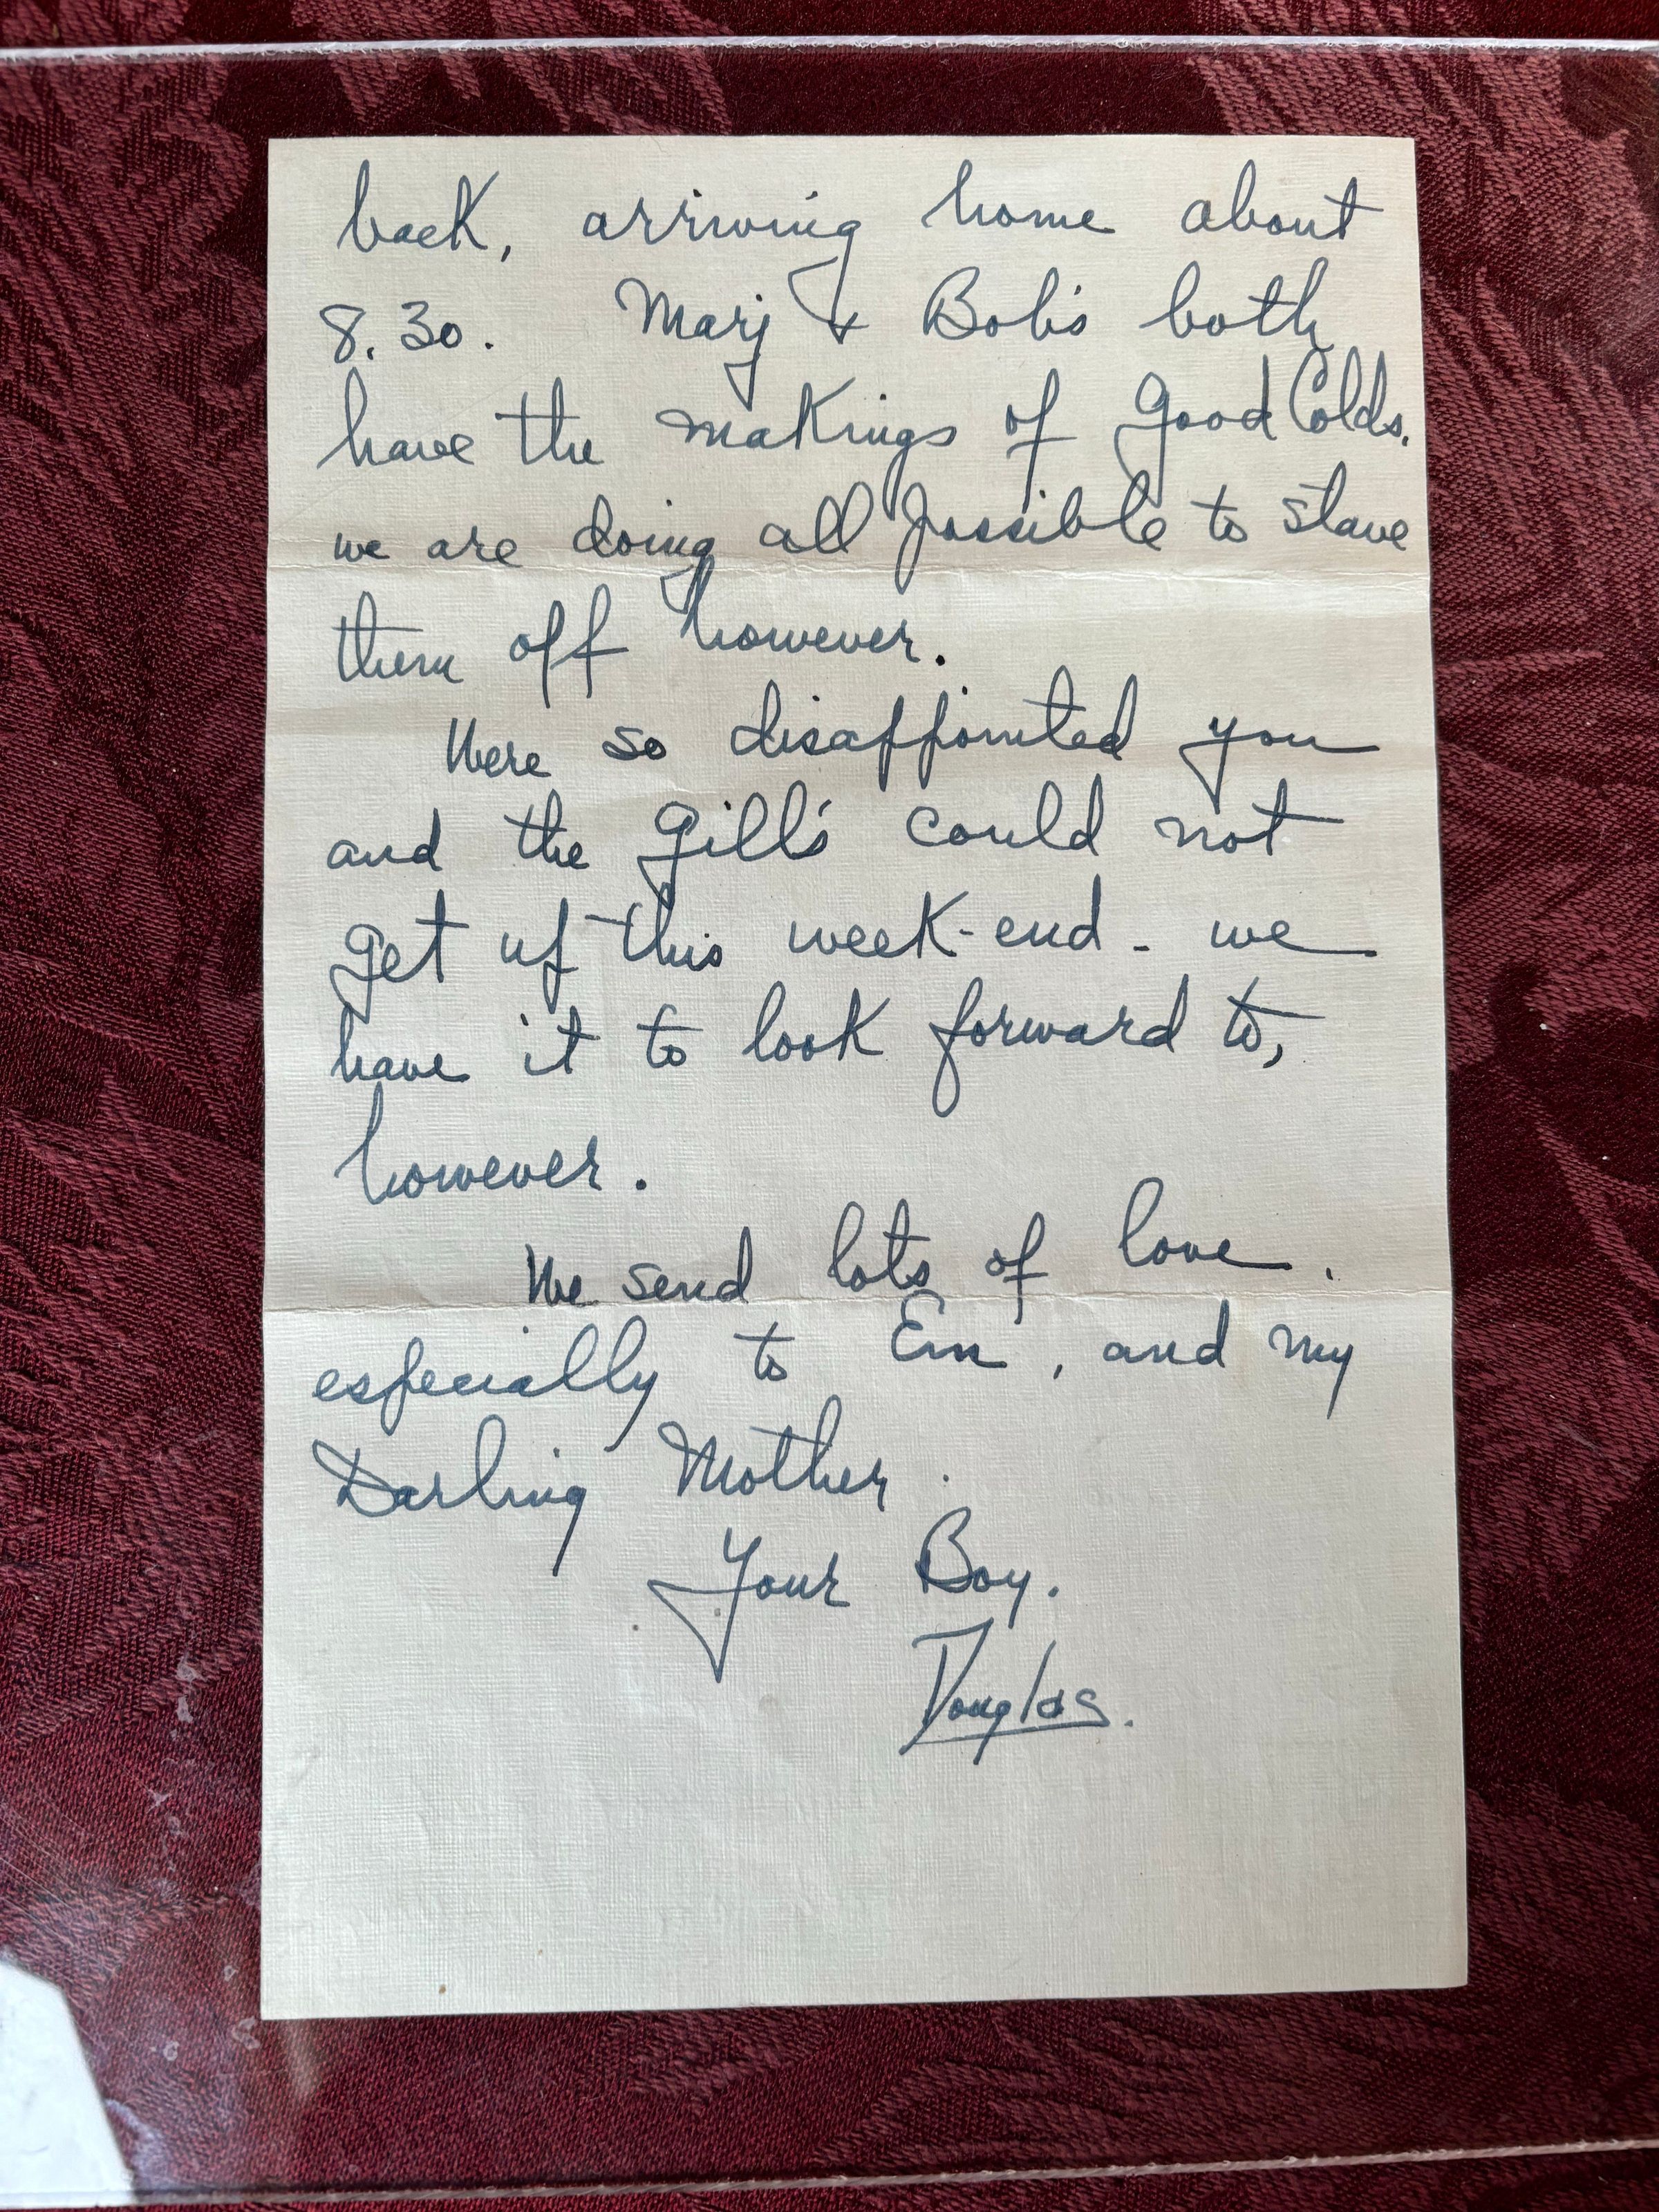 back, arriving home about
8.30. Marj & Bob's both
have the makings of good Colds.
we are doing all possible to stave
them off however.
Were so disappointed you
and the Gill's could not
get up this week-end - we
have it to look forward to,
however.
We send lots of love.
especially to Em, and my
Darling Mother.
Your Boy.
Douglas.